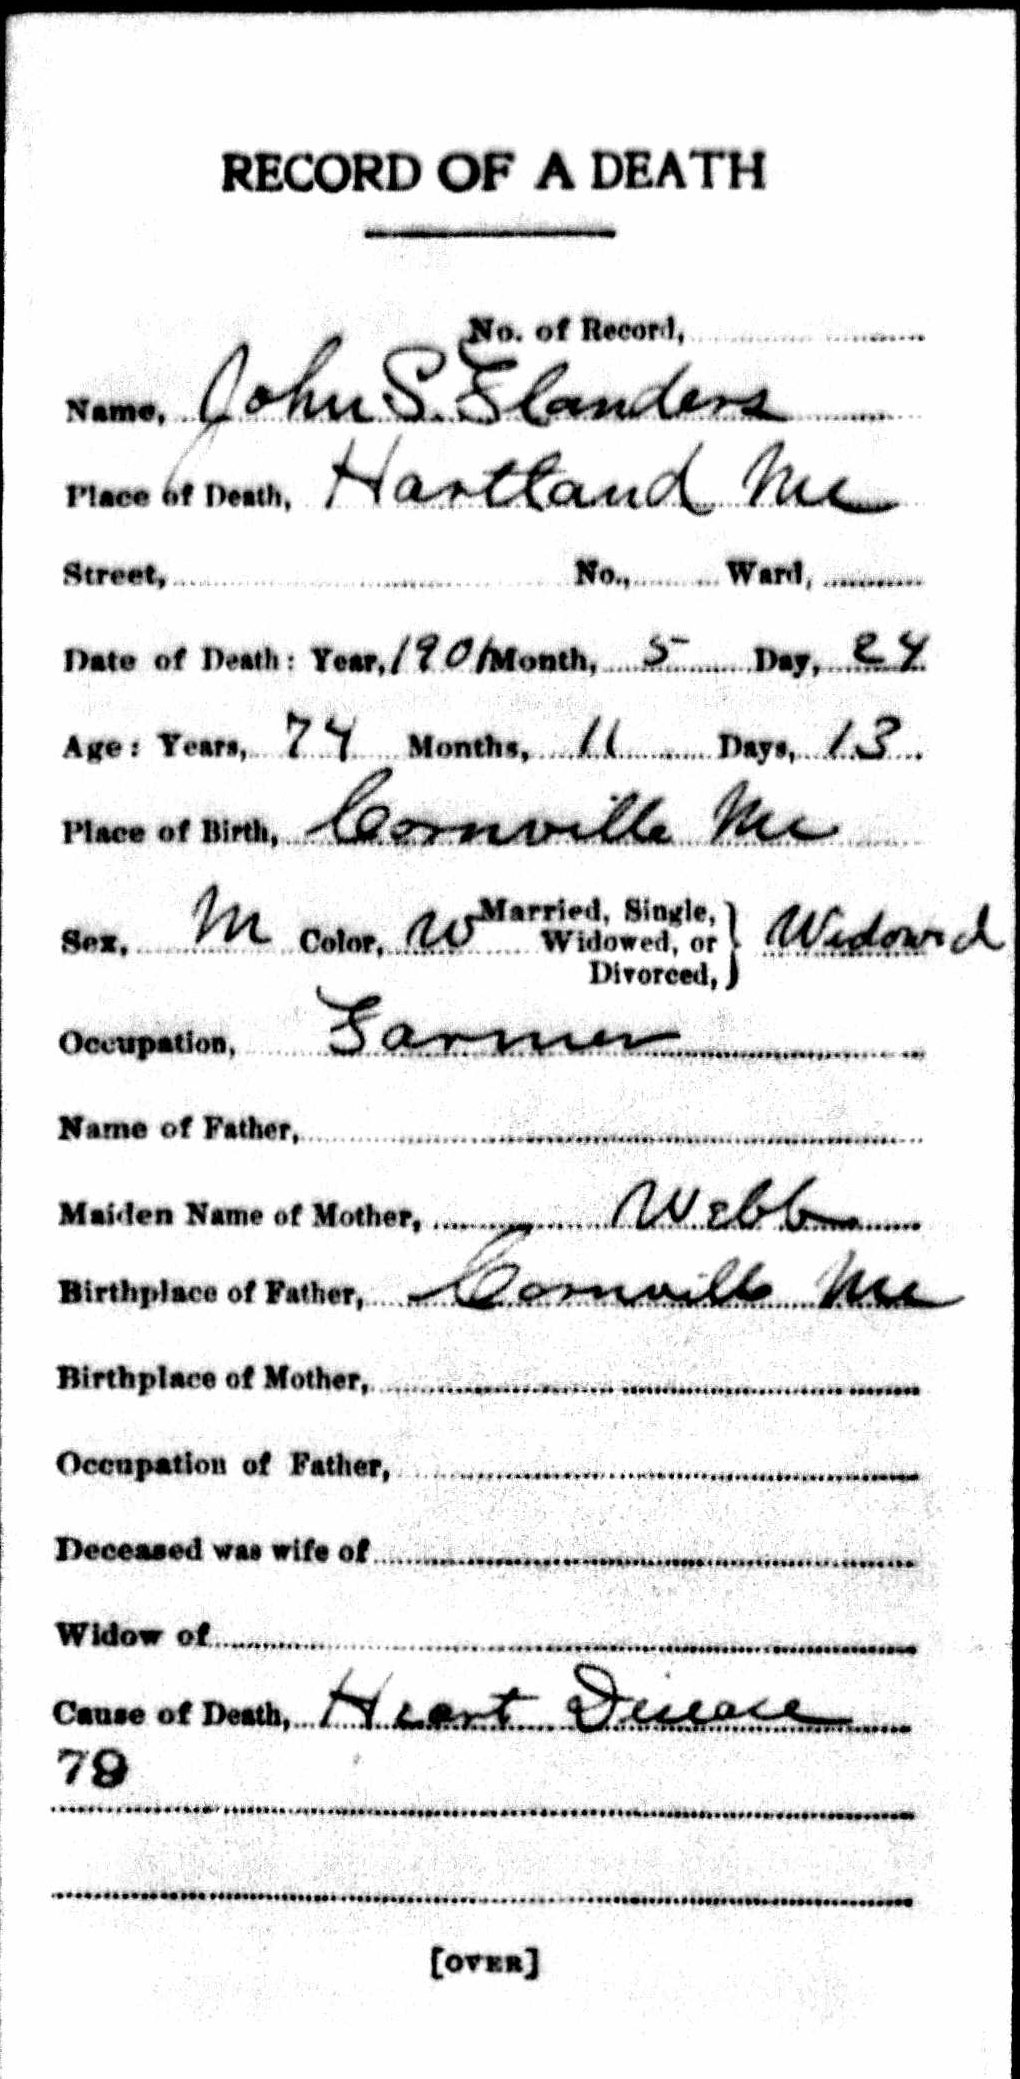 RECORD OF A DEATH
No. of Record,
Name, John S. Flanders
Place of Death, Hartland Me
Street, No., Ward,
Date of Death: Year, 1901 Month, 5 Day, 24
Age: Years, 74 Months, 11 Days, 13
Place of Birth, Cornville Me
Sex, M Color, W Married, Single, Widowed, or Divorced, } Widowed
Occupation, Farmer
Name of Father,
Maiden Name of Mother, Webb
Birthplace of Father, Cornville Me
Birthplace of Mother,
Occupation of Father,
Deceased was wife of
Widow of
Cause of Death, Heart Disease
79
[OVER]